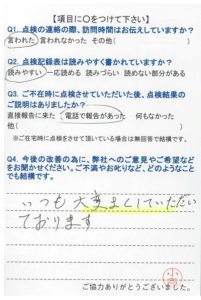 【項目に〇をつけて下さい】
Q1. 点検の連絡の際、訪問時間はお伝えしていますか?
言われた 言われなかった その他( )
Q2. 点検記録表は読みやすく書かれていますか?
読みやすい 一応読める 読みづらい 読めない部分がある
Q3. ご不在時に点検させていただいた後、点検結果の
ご説明はありましたか?
直接報告に来た 電話で報告があった 何もなかった
他( )
※ご在宅時に点検をさせて頂いている場合は無回答で結構です。
Q4. 今後の改善の為に、弊社へのご意見やご希望など
をお聞かせください。ご不満やお叱りなど、どのようなこと
でも結構です。
いつも大変よくしていただい
ております
ご協力ありがとうございました。